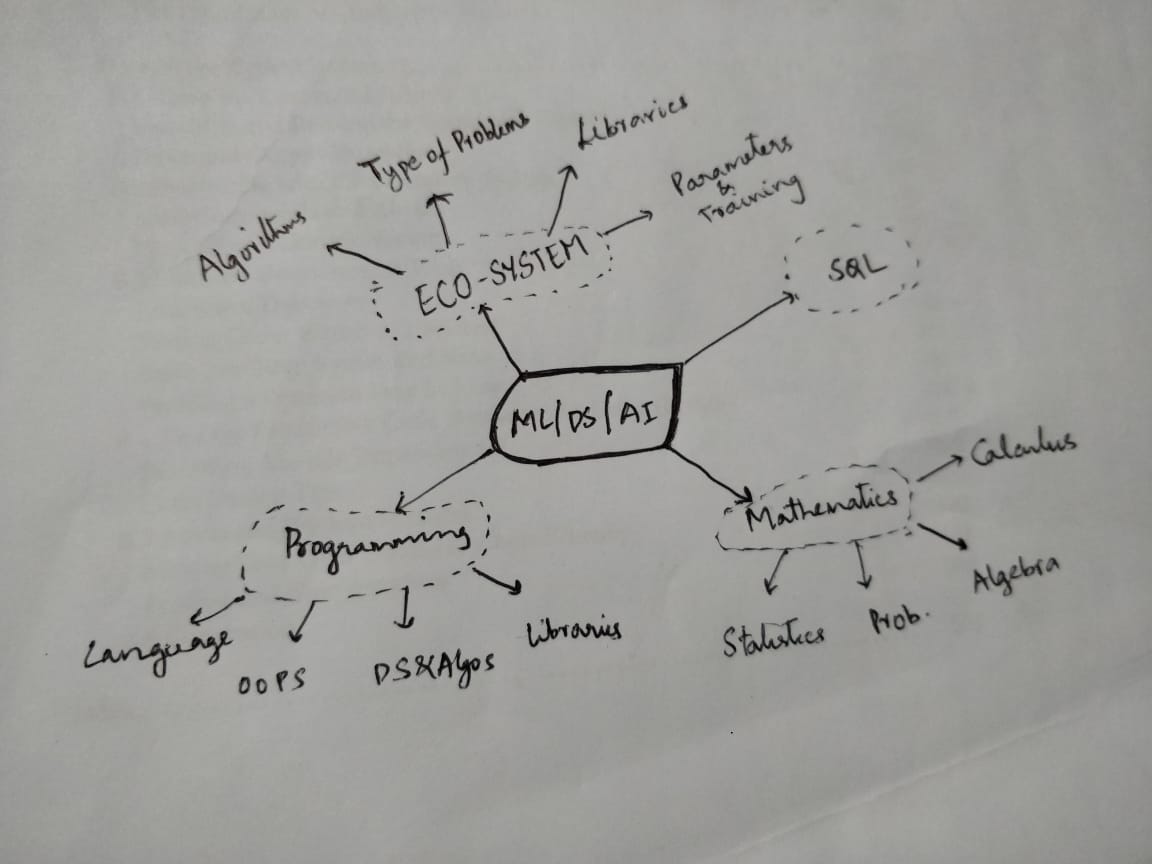 Libraries
Type of Problems
Parameters
&
Training
Algorithms
ECO-SYSTEM
SQL
ML/DS/AI
Calculus
Mathematics
Programming
Algebra
Language
OOPS
DS&Algos
Libraries
Statistics
Prob.